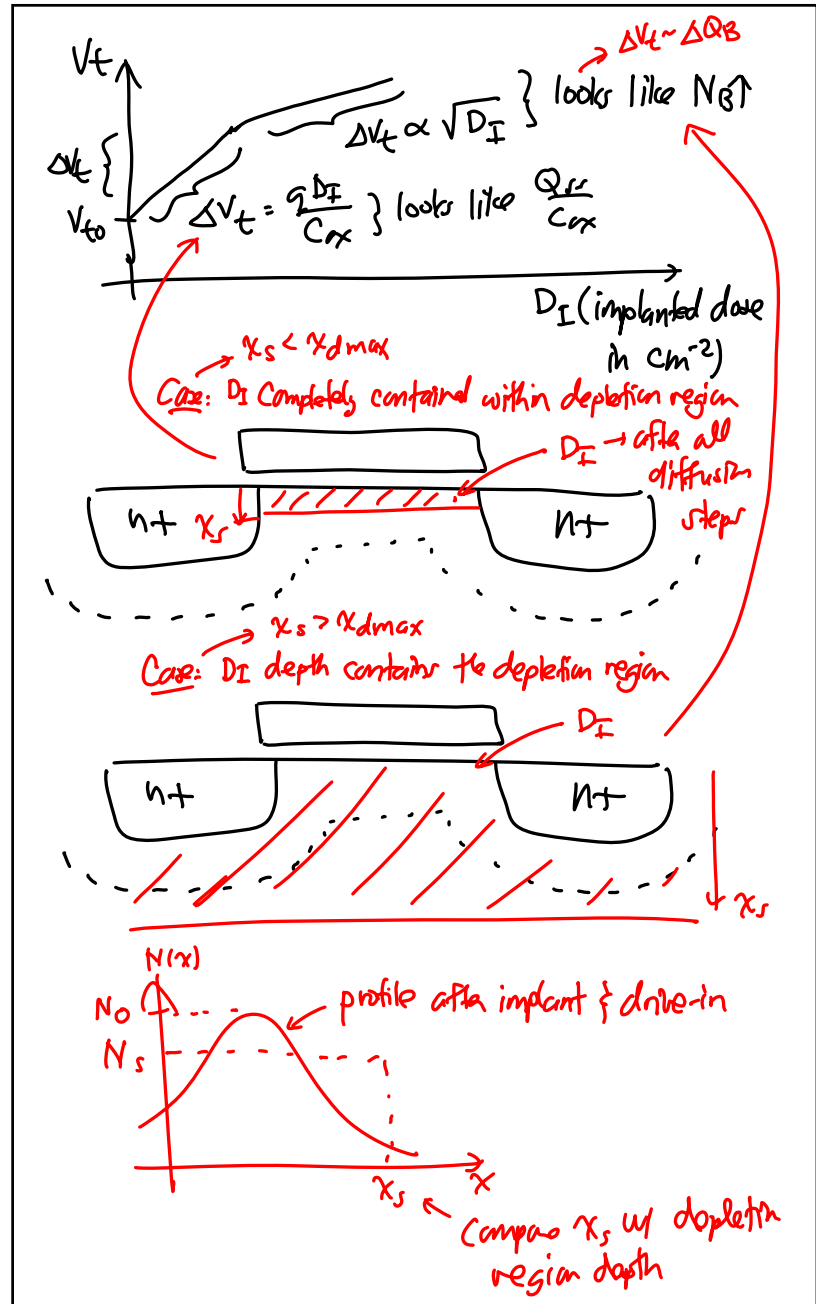 ΔVt ~ ΔQB
Vt
ΔVt ∝ √DI } looks like NB↑
ΔVt {
Vto
ΔVt = qDI/Cox } looks like Qss/Cox
DI (implanted dose
in cm⁻²)
xs < xdmax
Case: DI Completely contained within depletion region
DI → after all
diffusion
steps
n+
xs
n+
xs > xdmax
Case: DI depth contains the depletion region
DI
n+
n+
xs
N(x)
No
profile after implant & drive-in
Ns
xs
x
Compare xs w/ depletion
region depth